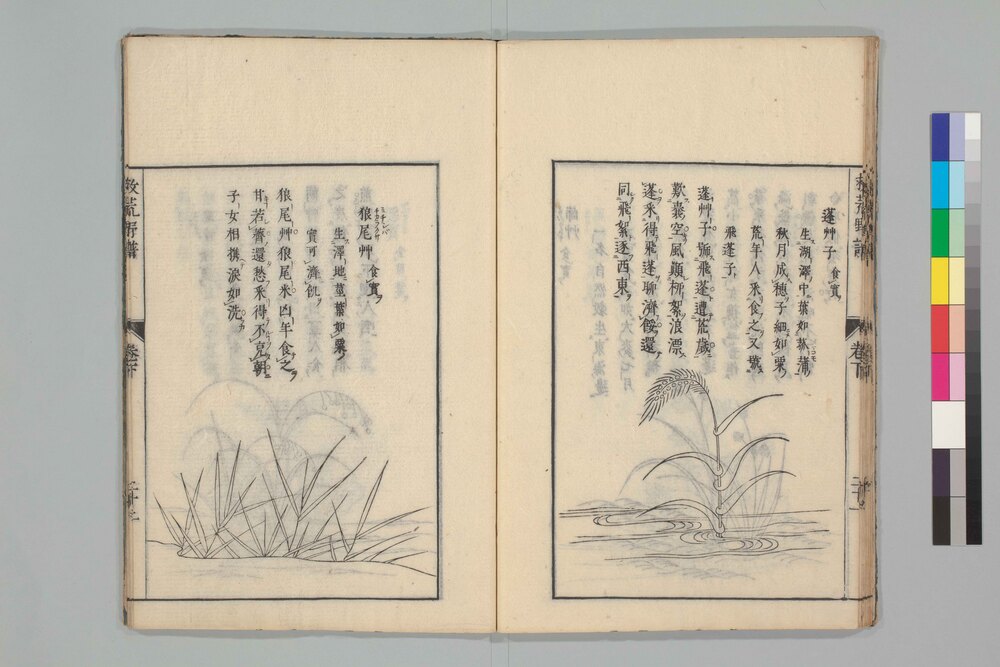 蓬艸子 食實
生湖澤中葉如菰蒲
秋月成穗子細如粟
荒年人釆食之又號
飛蓬子
蓬艸子䑛飛蓬遭荒歲
歎囊空風顛柳絮浪漂
蓬釆得飛蓬聊濟餒還
同飛絮逐西東
救荒野譜
卷下
狼尾艸 食實
生澤地莖葉如粟
實可濟飢
狼尾艸狼尾米凶年食之
甘若薺還愁釆得不克朝
子女相攜淚如洗
救荒野譜
卷下